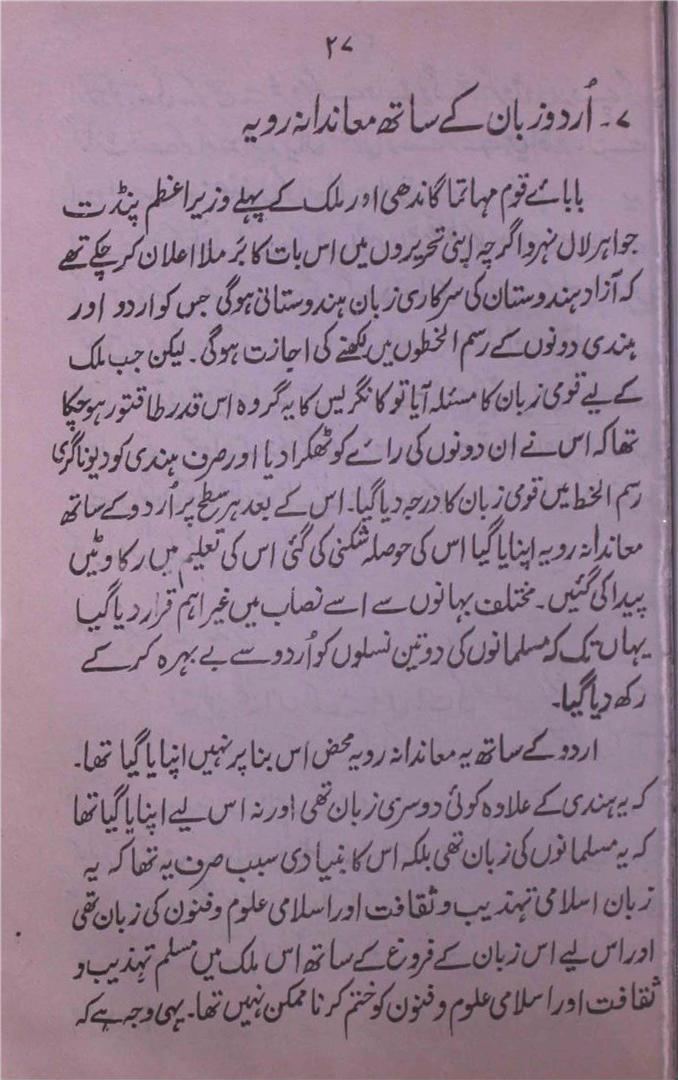 ۲۷
۷۔ اُردو زبان کے ساتھ معاندانہ رویہ
بابائے قوم مہاتما گاندھی اور ملک کے پہلے وزیر اعظم پنڈت
جواہر لال نہرو اگرچہ اپنی تحریروں میں اس بات کا بَرملا اعلان کر چکے تھے
کہ آزاد ہندوستان کی سرکاری زبان ہندوستانی ہوگی جس کو اردو اور
ہندی دونوں کے رسم الخطوں میں لکھنے کی اجازت ہوگی۔ لیکن جب ملک
کے لیے قومی زبان کا مسئلہ آیا تو کانگریس کا یہ گروہ اس قدر طاقتور ہو چکا
تھا کہ اس نے ان دونوں کی رائے کو ٹھکرا دیا اور صرف ہندی کو دیوناگری
رسم الخط میں قومی زبان کا درجہ دیا گیا۔ اس کے بعد ہر سطح پر اُردو کے ساتھ
معاندانہ رویہ اپنایا گیا اس کی حوصلہ شکنی کی گئی اس کی تعلیم میں رکاوٹیں
پیدا کی گئیں۔ مختلف بہانوں سے اسے نصاب میں غیر اہم قرار دیا گیا
یہاں تک کہ مسلمانوں کی دو تین نسلوں کو اُردو سے بے بہرہ کر کے
رکھ دیا گیا۔
اردو کے ساتھ یہ معاندانہ رویہ محض اس بنا پر نہیں اپنایا گیا تھا۔
کہ یہ ہندی کے علاوہ کوئی دوسری زبان تھی اور نہ اس لیے اپنایا گیا تھا
کہ یہ مسلمانوں کی زبان تھی بلکہ اس کا بنیادی سبب صرف یہ تھا کہ یہ
زبان اسلامی تہذیب و ثقافت اور اسلامی علوم و فنون کی زبان تھی
اور اس لیے اس زبان کے فروغ کے ساتھ اس ملک میں مسلم تہذیب و
ثقافت اور اسلامی علوم و فنون کو ختم کرنا ممکن نہیں تھا۔ یہی وجہ ہے کہ